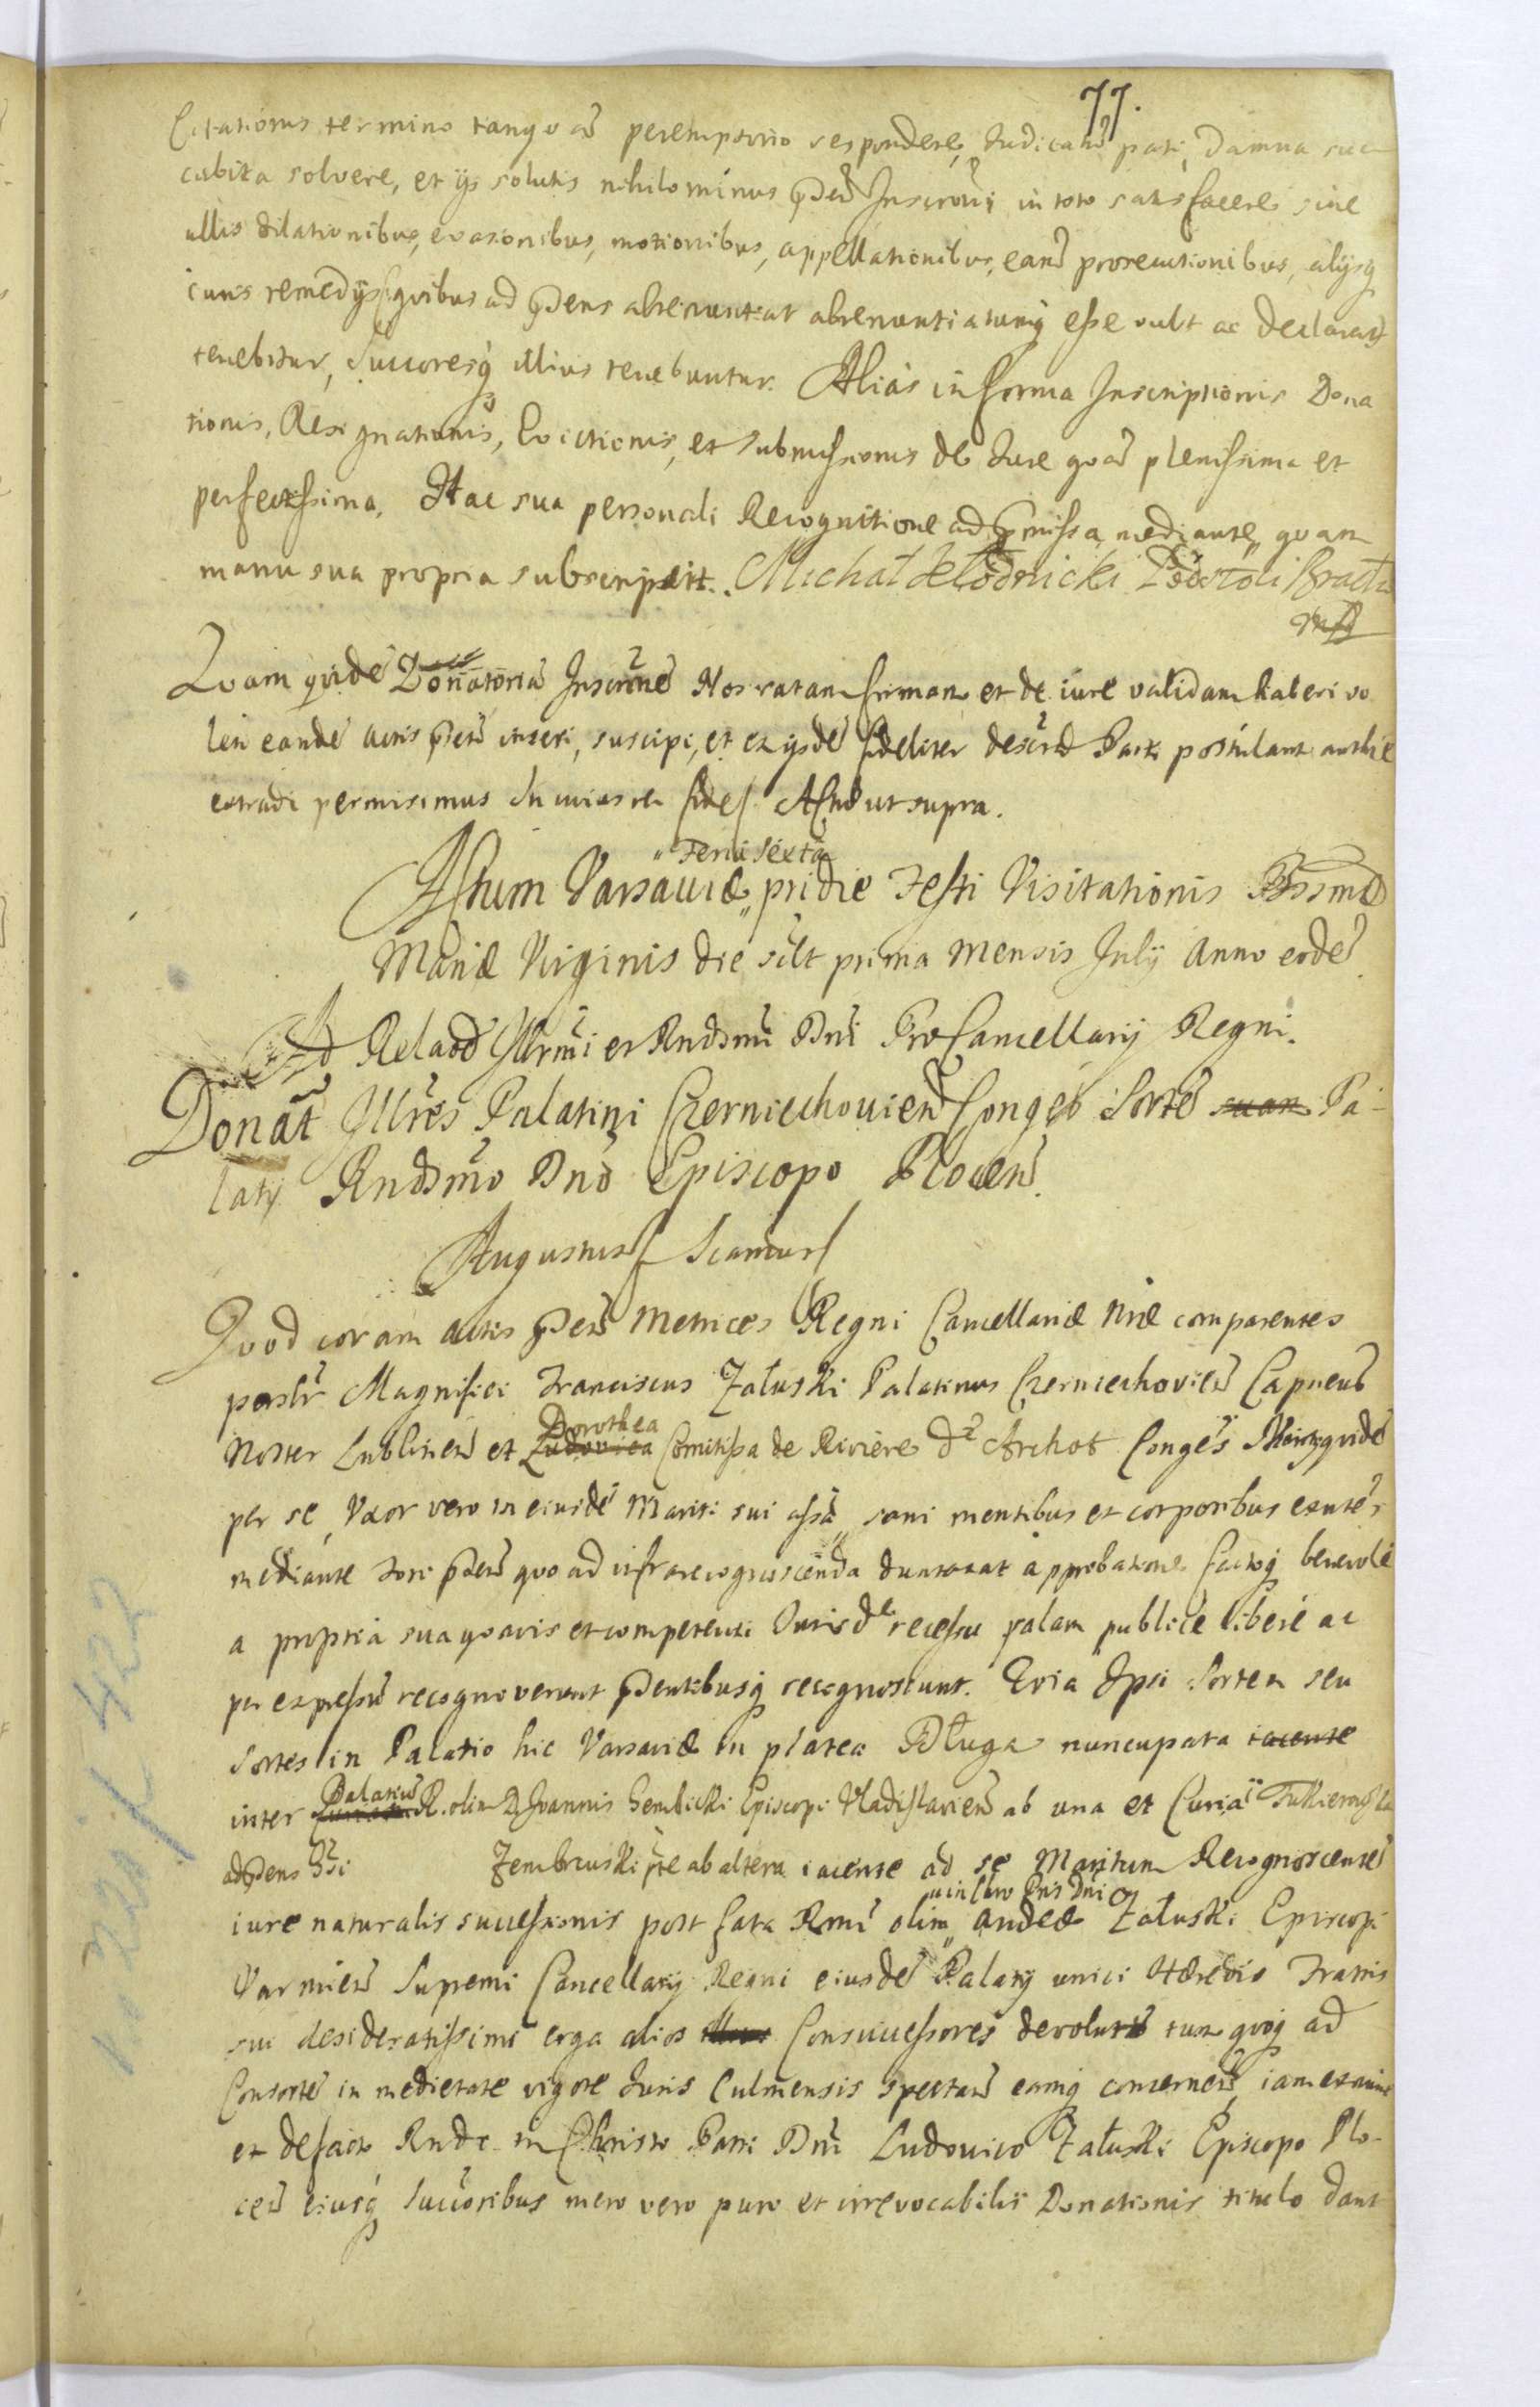 77.
Citationis termino tanquã peremptorio respondere, Iudicatũ pati, Damna suc
cubita solvere, et ijs solutis nihilominus pñti Inscrõni in toto satisfacere sine
ullis dilationibus, evasionibus, motionibus, appellationibus, earũ prosecutionibus, alijsq
iuris remedijs, quibus ad pñens abrenuntiat abrenuntiatumq esse vult ac declarat
tenebitur, Succoresq illius tenebuntur. Alias in forma Inscriptionis Dona
tionis, Resignationis, Evictionis, et Submissionis de Iure quã plenissima et
perfectissima. Hac sua personali Recognitione ad pmissa mediante, quam
manu sua propria subscripsit. Michał
Quam quidẽ Donatoriã Inscrõnẽ Nos ratam firmam et de iure validam haberi vo
len eandẽ actis pñtĩ inseri, suscipi, et ex ijsdẽ fideliter descrid Parti postulanti authẽ
extradi permisimus In cuius rei fidẽ Actũ ut supra.
Feria Sexta
Actum Varsaviæ pridie Festi Visitationis Bssmæ
Mariæ Virginis die scilt prima Mensis Julij Anno eodẽ
Ad Relaõẽ Illrmi et Rndsmi Dni ProCancellarij Regni.
Donãt Illres Palatini Czerniechovieñ Congeõ Sortẽ suam Pa-
latij Rndsmo Dnõ Episcopo Ploceñ.
Augustus Scdus
Quod coram actis pñtĩ Metrices Regni Cancellariæ Nræ comparentes
psnlr Magnifici Franciscus Załuski Palatinus Czerniechovieñ Capneus
Noster Lublineñ et Ludovica Dorothea Comitissa de Riviere d' Archot Conges Maritg quidẽ
per se, Uxor vero in eiusdẽ Mariti sui assã, sani mentibus et corporibus exnẽs
mediante Fori pñtĩ quo ad infra recognoscenda duntaxat approbatione factoq benevolé
a proprio suo quovis et competenti Iurisd recessu palam publicé liberé ac
per expressũ recognoverunt pñtibusq recognoscunt. Quia Ipsi Sortem seu
Sortes in Palatio hic Varsaviæ in platea Długa nuncupata iacente
inter Palatiũ R. olim D Joannis Gembicki Episcopi Vladislavieñ ab una et Curiã
ad pñens Gsi Zembrzuski pte ab altera iacente ad se Maritum Recognoscentẽ
iure naturalis successionis post fata Rmi olim in Chro Pris Dni Andreæ Załuski Episcopi
Varmieñ Supremi Cancellarij Regni eiusdẽ Palatij unici Hæredis Fratris
sui desideratissimi erga alios Consuccessores devolutũ tum quoq ad
Consortẽ in medietate vigore Iuris Culmensis spectañ eamq concerneñ, iam ex nunc
et defacto Rndo in Christo Patri Dnĩ Ludovico Załuski Episcopo Plo-
ceñ eiusq Succoribus mero vero puro et irrevocabilis Donationis titulo dant